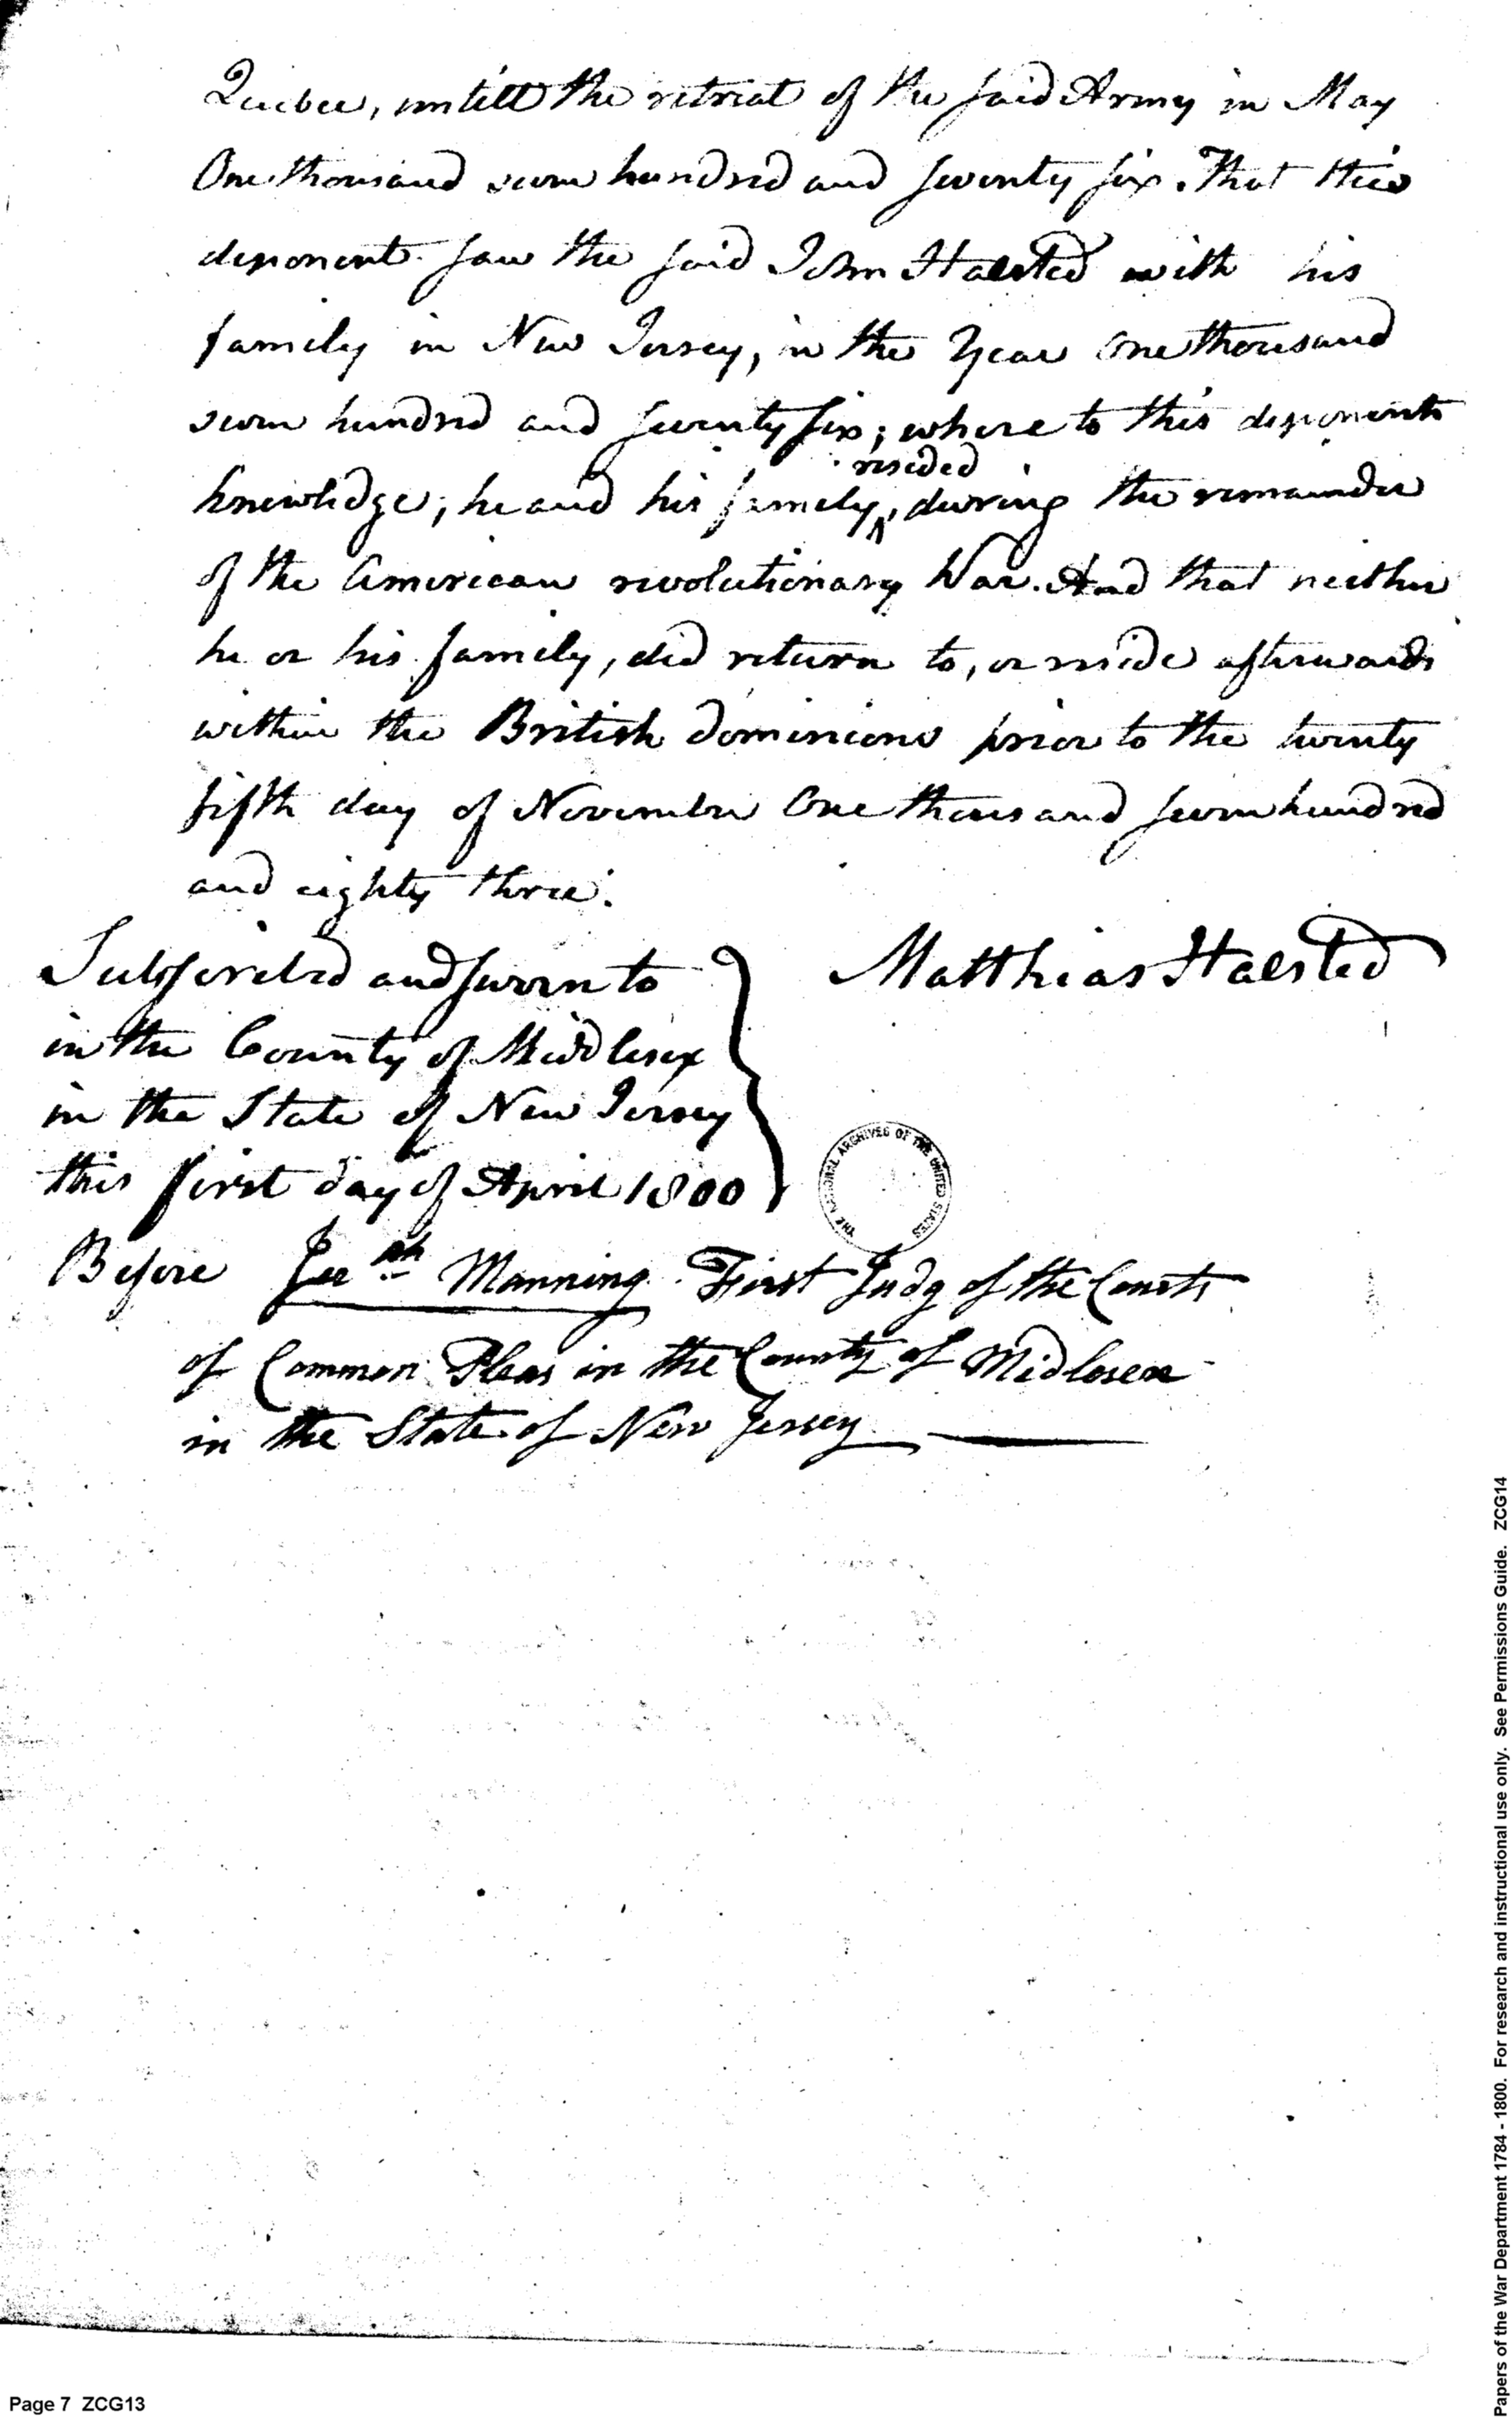 Quebec, untill the retreat of the said Army in May
One thousand seven hundred and seventy six. That this
deponent saw the said John Halsted with his
family in New Jersey, in the Year One thousand
seven hundred and seventy six; where to this deponents
knowledge; he and his family, resided during the remainder
of the American revolutionary War. And that neither
he or his family, did return to, or reside afterwards
within the British dominions prior to the twenty
fifth day of November One thousand seven hundred
and eighty three.
Matthias Halsted
Subscribed and sworn to
in the County of Middlesex
in the State of New Jersey
this first day of April 1800
Before Jerah Manning First Judg of the Courts
of Common Pleas in the County of Midlesex
in the State of New Jersey
THE NATIONAL ARCHIVES OF THE UNITED STATES
Page 7 ZCG13
Papers of the War Department 1784 - 1800. For research and instructional use only. See Permissions Guide. ZCG14